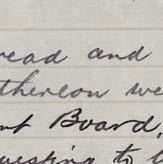 read and
thereon we
nt Board,
uesting to